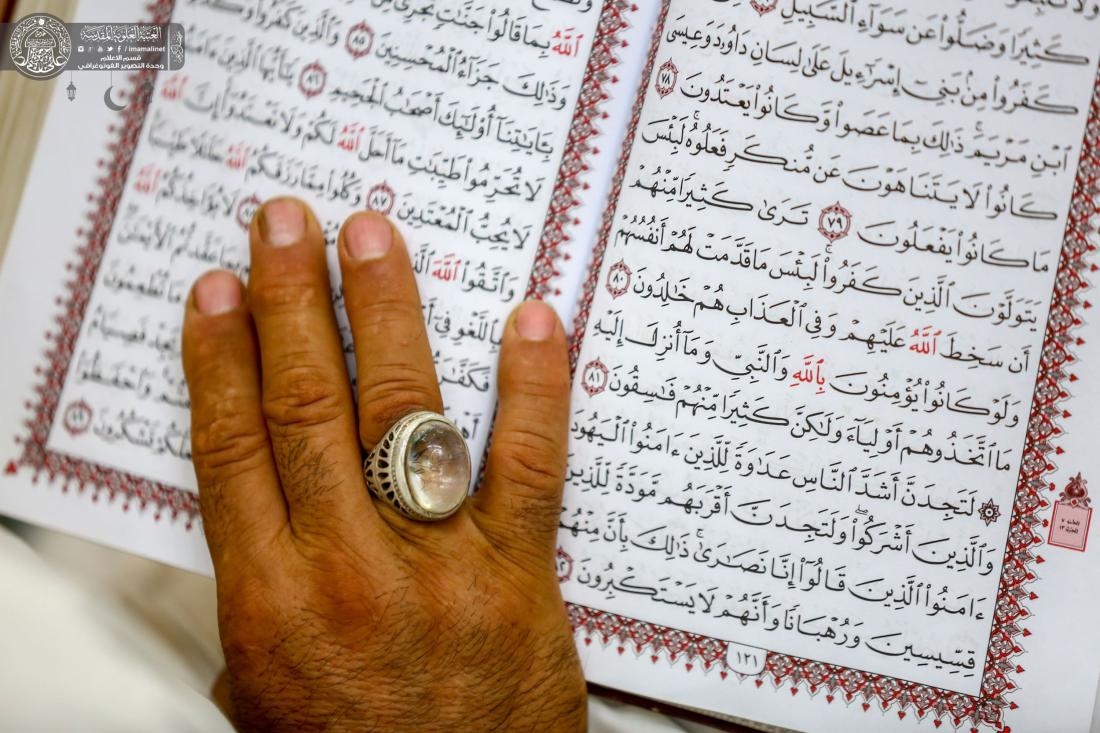 العتبة العلوية المقدسة
/ imamalinet
قسم الاعلام
وحدة التصوير الفوتوغرافي
كَثِيرًا وَضَلُّوا۟ عَن سَوَآءِ ٱلسَّبِيلِ
كَفَرُوا۟ مِنۢ بَنِىٓ إِسْرَٰٓءِيلَ عَلَىٰ لِسَانِ دَاوُۥدَ وَعِيسَى
ٱبْنِ مَرْيَمَ ۚ ذَٰلِكَ بِمَا عَصَوا۟ وَّكَانُوا۟ يَعْتَدُونَ ٧٨
كَانُوا۟ لَا يَتَنَاهَوْنَ عَن مُّنكَرٍ فَعَلُوهُ ۚ لَبِئْسَ
مَا كَانُوا۟ يَفْعَلُونَ ٧٩ تَرَىٰ كَثِيرًا مِّنْهُمْ
يَتَوَلَّوْنَ ٱلَّذِينَ كَفَرُوا۟ ۚ لَبِئْسَ مَا قَدَّمَتْ لَهُمْ أَنفُسُهُمْ
أَن سَخِطَ ٱللَّهُ عَلَيْهِمْ وَفِى ٱلْعَذَابِ هُمْ خَٰلِدُونَ ٨٠
وَلَوْ كَانُوا۟ يُؤْمِنُونَ بِٱللَّهِ وَٱلنَّبِىِّ وَمَآ أُنزِلَ إِلَيْهِ
مَا ٱتَّخَذُوهُمْ أَوْلِيَآءَ وَلَٰكِنَّ كَثِيرًا مِّنْهُمْ فَٰسِقُونَ ٨١
۞ لَتَجِدَنَّ أَشَدَّ ٱلنَّاسِ عَدَٰوَةً لِّلَّذِينَ ءَامَنُوا۟ ٱلْيَهُودَ
وَٱلَّذِينَ أَشْرَكُوا۟ ۖ وَلَتَجِدَنَّ أَقْرَبَهُم مَّوَدَّةً لِّلَّذِينَ
ءَامَنُوا۟ ٱلَّذِينَ قَالُوٓا۟ إِنَّا نَصَٰرَىٰ ۚ ذَٰلِكَ بِأَنَّ مِنْهُمْ
قِسِّيسِينَ وَرُهْبَانًا وَأَنَّهُمْ لَا يَسْتَكْبِرُونَ ٨٢
١٢١
ٱللَّهُ بِمَا قَالُوا۟ جَنَّٰتٍ تَجْرِى
وَذَٰلِكَ جَزَآءُ ٱلْمُحْسِنِينَ ٨٥ وَٱلَّذِينَ كَفَرُوا۟
بِـَٔايَٰتِنَآ أُو۟لَٰٓئِكَ أَصْحَٰبُ ٱلْجَحِيمِ ٨٦ يَٰٓأَيُّهَا ٱلَّذِينَ ءَامَنُوا۟
لَا تُحَرِّمُوا۟ طَيِّبَٰتِ مَآ أَحَلَّ ٱللَّهُ لَكُمْ وَلَا تَعْتَدُوٓا۟ ۚ إِنَّ ٱللَّهَ
لَا يُحِبُّ ٱلْمُعْتَدِينَ ٨٧ وَكُلُوا۟ مِمَّا رَزَقَكُمُ ٱللَّهُ حَلَٰلًا طَيِّبًا
وَٱتَّقُوا۟ ٱللَّهَ لَا يُؤَاخِذُكُمُ ٱللَّهُ
بِٱللَّغْوِ فِىٓ بِمَا عَقَّدتُّمُ ٱلْأَيْمَٰنَ
فَكَفَّٰرَ مَا تُطْعِمُونَ
فَصِيَامُ
وَٱحْفَظُوٓا۟
تَشْكُرُونَ ٨٩